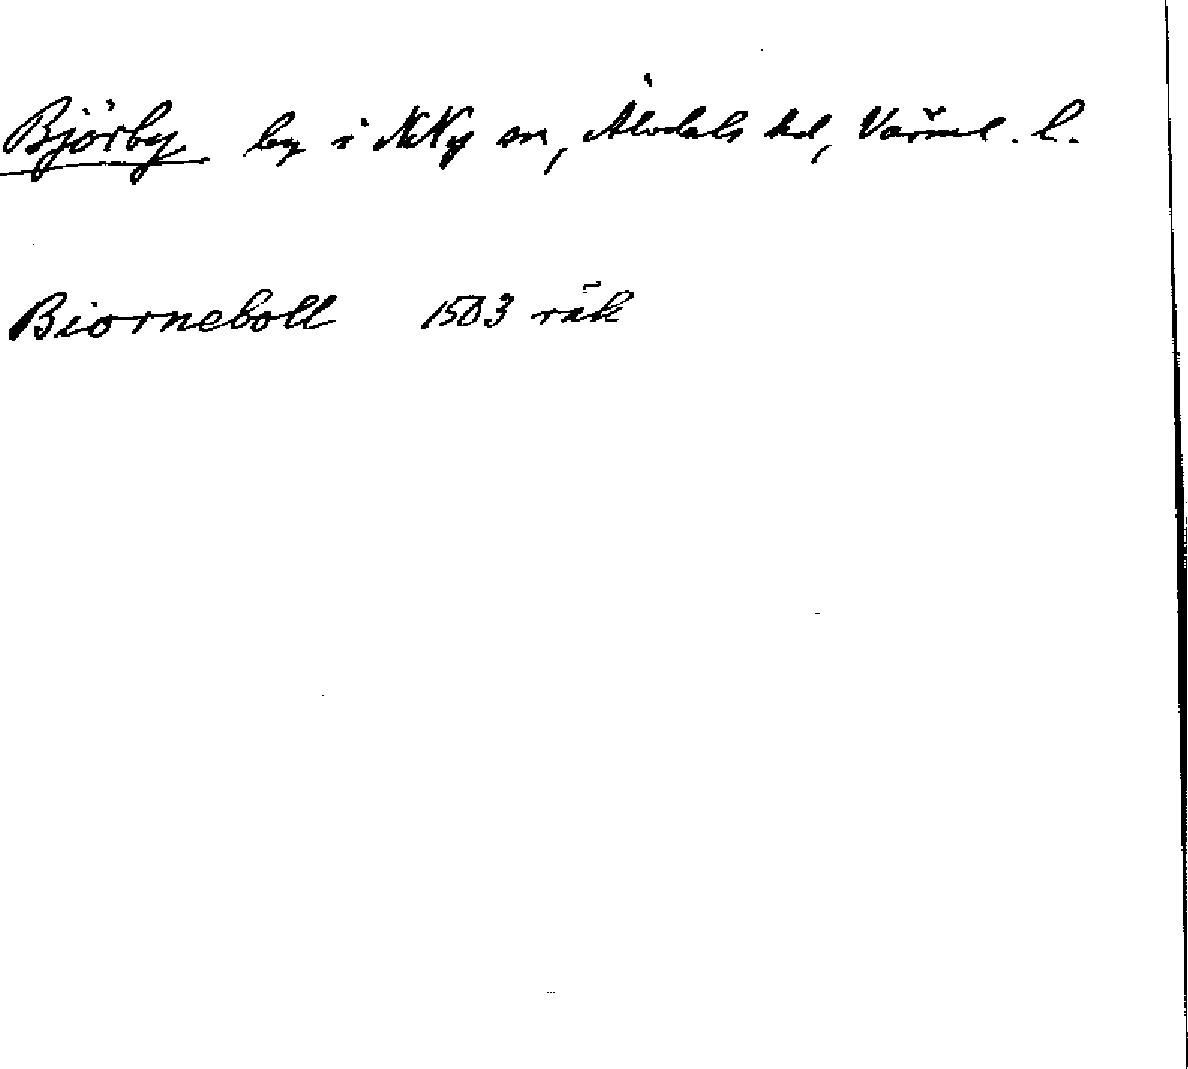 Björby by i NNy sn, Älvdals hd, Värml. l.
Biorneboll 1503 räk